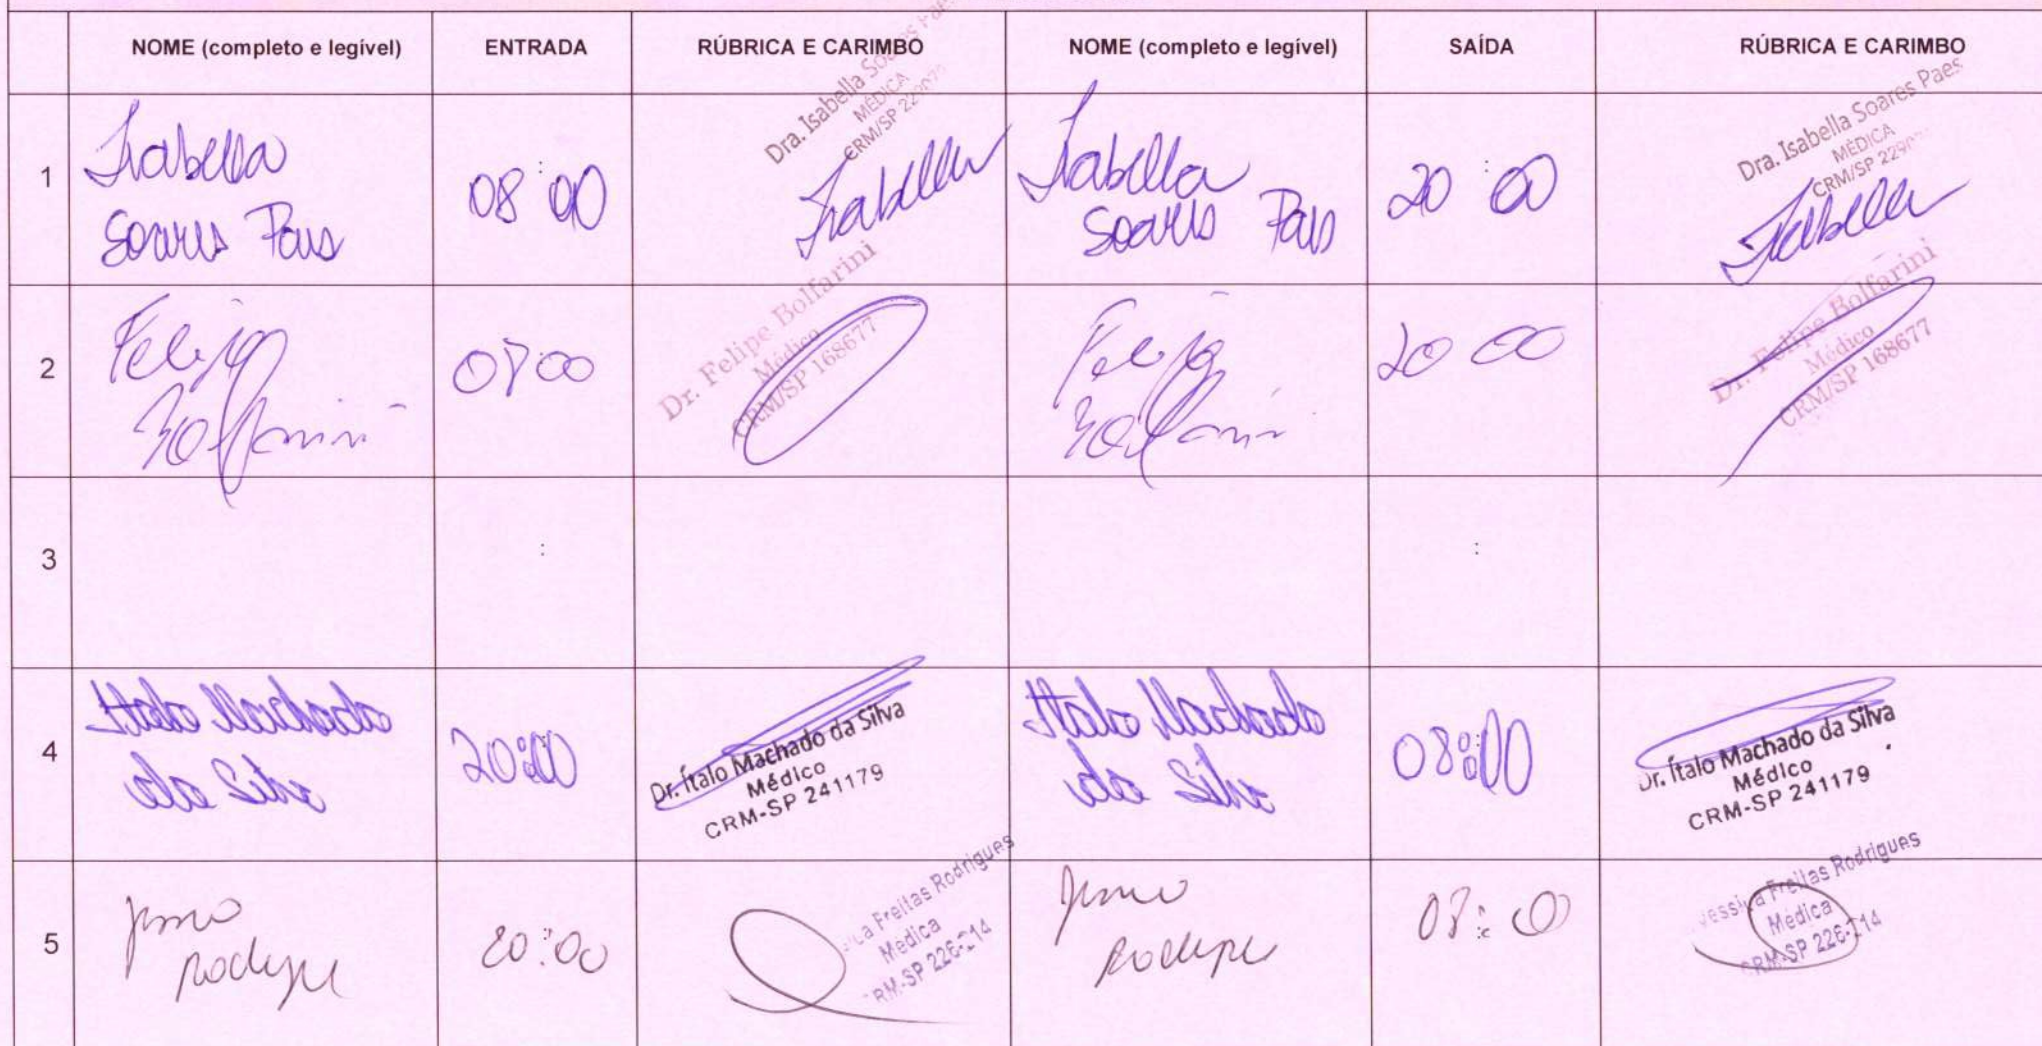 NOME (completo e legível) ENTRADA RÚBRICA E CARIMBO NOME (completo e legível) SAÍDA RÚBRICA E CARIMBO
1
Isabella
Soares Paes
08:00
Dra. Isabella Soares Paes
MÉDICA
CRM/SP
Isabella
Isabella
Soares Paes
20:00
Dra. Isabella Soares Paes
MÉDICA
CRM/SP
Isabella
2
Felipe
Bolfarini
08:00
Dr. Felipe Bolfarini
Médico
CRM/SP 168677
Felipe
Bolfarini
20:00
Dr. Felipe Bolfarini
Médico
CRM/SP 168677
3
:
:
4
Italo Machado
da Silva
20:00
Dr. Ítalo Machado da Silva
Médico
CRM-SP 241179
Italo Machado
da Silva
08:00
Dr. Ítalo Machado da Silva
Médico
CRM-SP 241179
5
20:00
Freitas Rodrigues
Médica
08:00
Jessica Freitas Rodrigues
Médica